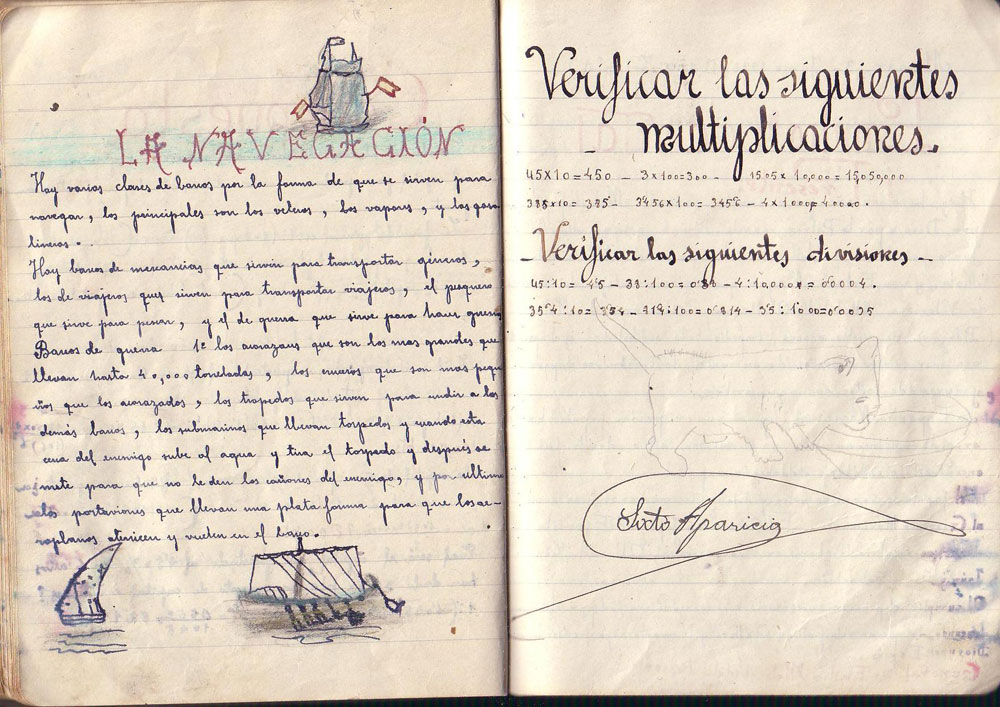 LA NAVEGACIÓN
Hay varias clases de barcos por la forma de que se sirven para
navegar, los principales son los veleros, los vapores, y los gaso
lineros.
Hay barcos de mercancias que sirvin para transportar géneros,
los de viajeros ques sirven para transportar viajeros, el pesquero
que sirve para pescar, y el de guerra que sirve para hacer guerra
Barcos de guerra 1º los acorazaus que son los mas grandes que
llevan hasta 40,000 toneladas, los cruceros que son mas peque
ños que los acorazados, los trapedos que sirven para undir a los
demás barcos, los submarinos que llevan torpedos y cuando esta
cerca del enemigo sube al agua y tira el torpedo y después se
mete para que no le den los cañones del enemigo, y por ultimo
los portaviones que llevan una plata forma para que los ae-
roplanos aterricen y vuelen en el barco.
Verificar las siguientes
multiplicaciones.
45x10=450 - 3x100=300 - 1505x10,000=15,050,000
385x10= 385 - 3456x100= 3456 - 4x1000=40000.
- Verificar las siguientes divisiones -
45:10= 45 - 38:100=0'38 - 4:10,000=0'0004.
354:10= 354 - 214:100=0'214 - 35:1000=0'0035
Sixto Aparicio